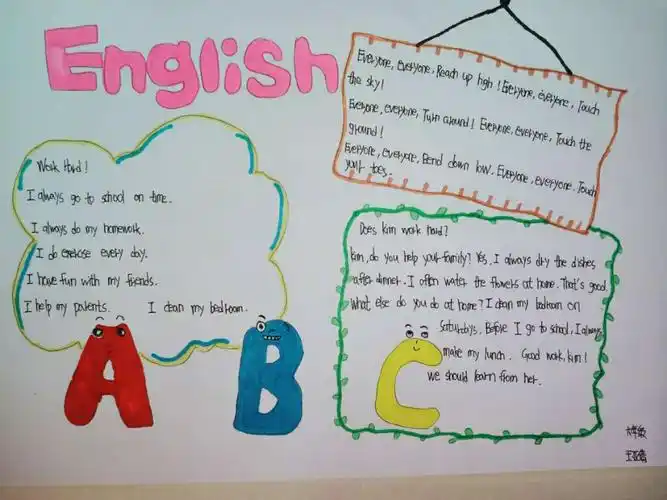 English
Everyone, everyone, Reach up high! Everyone, everyone, Touch
the sky!
Everyone, everyone, Turn around! Everyone, everyone, Touch the
ground!
Everyone, everyone, Bend down low. Everyone, everyone. Touch
your toes.
Work Hard!
I always go to school on time.
I always do my homework.
I do exercise every day.
I have fun with my friends.
I help my parents. I clean my bedroom.
Does kim work hard?
kim, do you help your family? Yes, I always dry the dishes
after dinner. I often water the flowers at home. That's good
What else do you do at home? I clean my bedroom on
Saturbays. Before I go to school, I always
make my lunch. Good work, kim!
We should learn from her.
A B C